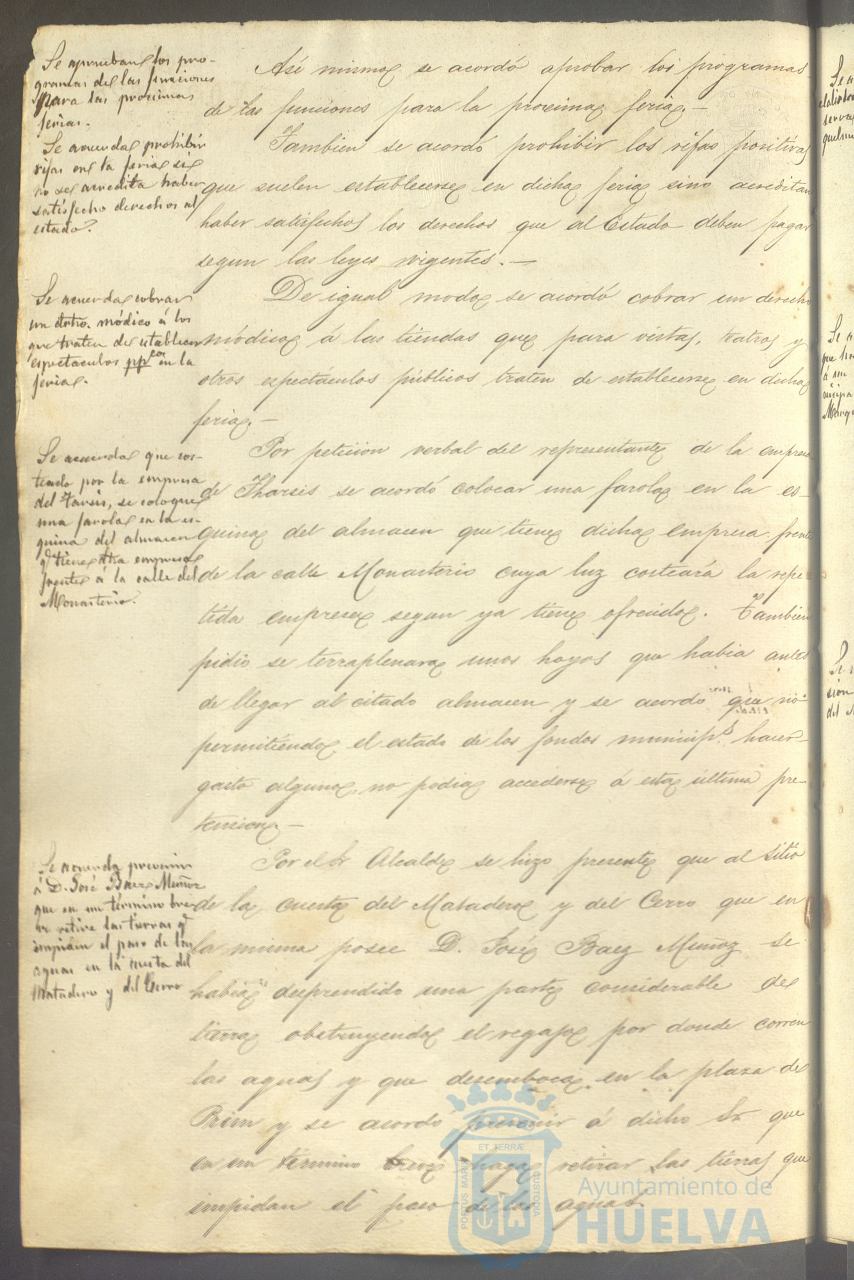 Se aprueban los pro-
gramas de las funciones
para las proximas
ferias.
Así mismo se acordó aprobar los programas
de las funciones para la proxima feria.—
Se acuerda prohibir
rifas en la feria si
no se acredita haber
satisfecho derechos al
estado.
Tambien se acordó prohibir las rifas positivas
que suelen establecerse en dicha feria sino acreditan
haber satisfechos los derechos que al Estado deben pagar
segun las leyes vigentes.—
Se acuerda cobrar
un dro. módico á los
que traten de establecer
espectaculos ppcos en la
feria.
De igual modo se acordó cobrar un derecho
módico á las tiendas que para vistas, teatros y
otros espectáculos públicos traten de establecerse en dicha
feria.—
Se acuerda que cos-
teada por la empresa
del Tarsis, se coloque
una farola en la es-
quina del almacen
q. tiene dha empresa
frente á la calle del
Monasterio.
Por peticion verbal del representante de la empresa
de Tharsis se acordó colocar una farola en la es-
quina del almacen que tiene dicha empresa frente
de la calle Monasterio cuya luz costeará la repe-
tida empresa segun ya tiene ofrecido. Tambien
pidio se terraplenara unos hoyos que habia antes
de llegar al citado almacen y se acordó que no
permitiendo el estado de los fondos municip.s hacer
gasto alguno, no podia accederse á esta última pre-
tension.—
Se acuerda prevenir
á D. José Baez Muñoz
que en un término breve
se retire las tierras q.
impiden el paso de las
aguas en la cuesta del
Matadero y del Cerro
Por el Sr Alcalde se hizo presente que al sitio
de la cuesta del Matadero y del Cerro que en
la misma posee D. José Baez Muñoz se
habia desprendido una parte considerable de
tierra obstruyendo el regajo por donde corren
las aguas y que desemboca en la plaza de
Prim y se acordó prevenir á dicho Sr que
en un término breve haga retirar las tierras que
impidan el paso de las aguas
ET TERRÆ
PORTUS MARIS
CUSTODIA
Ayuntamiento de
HUELVA